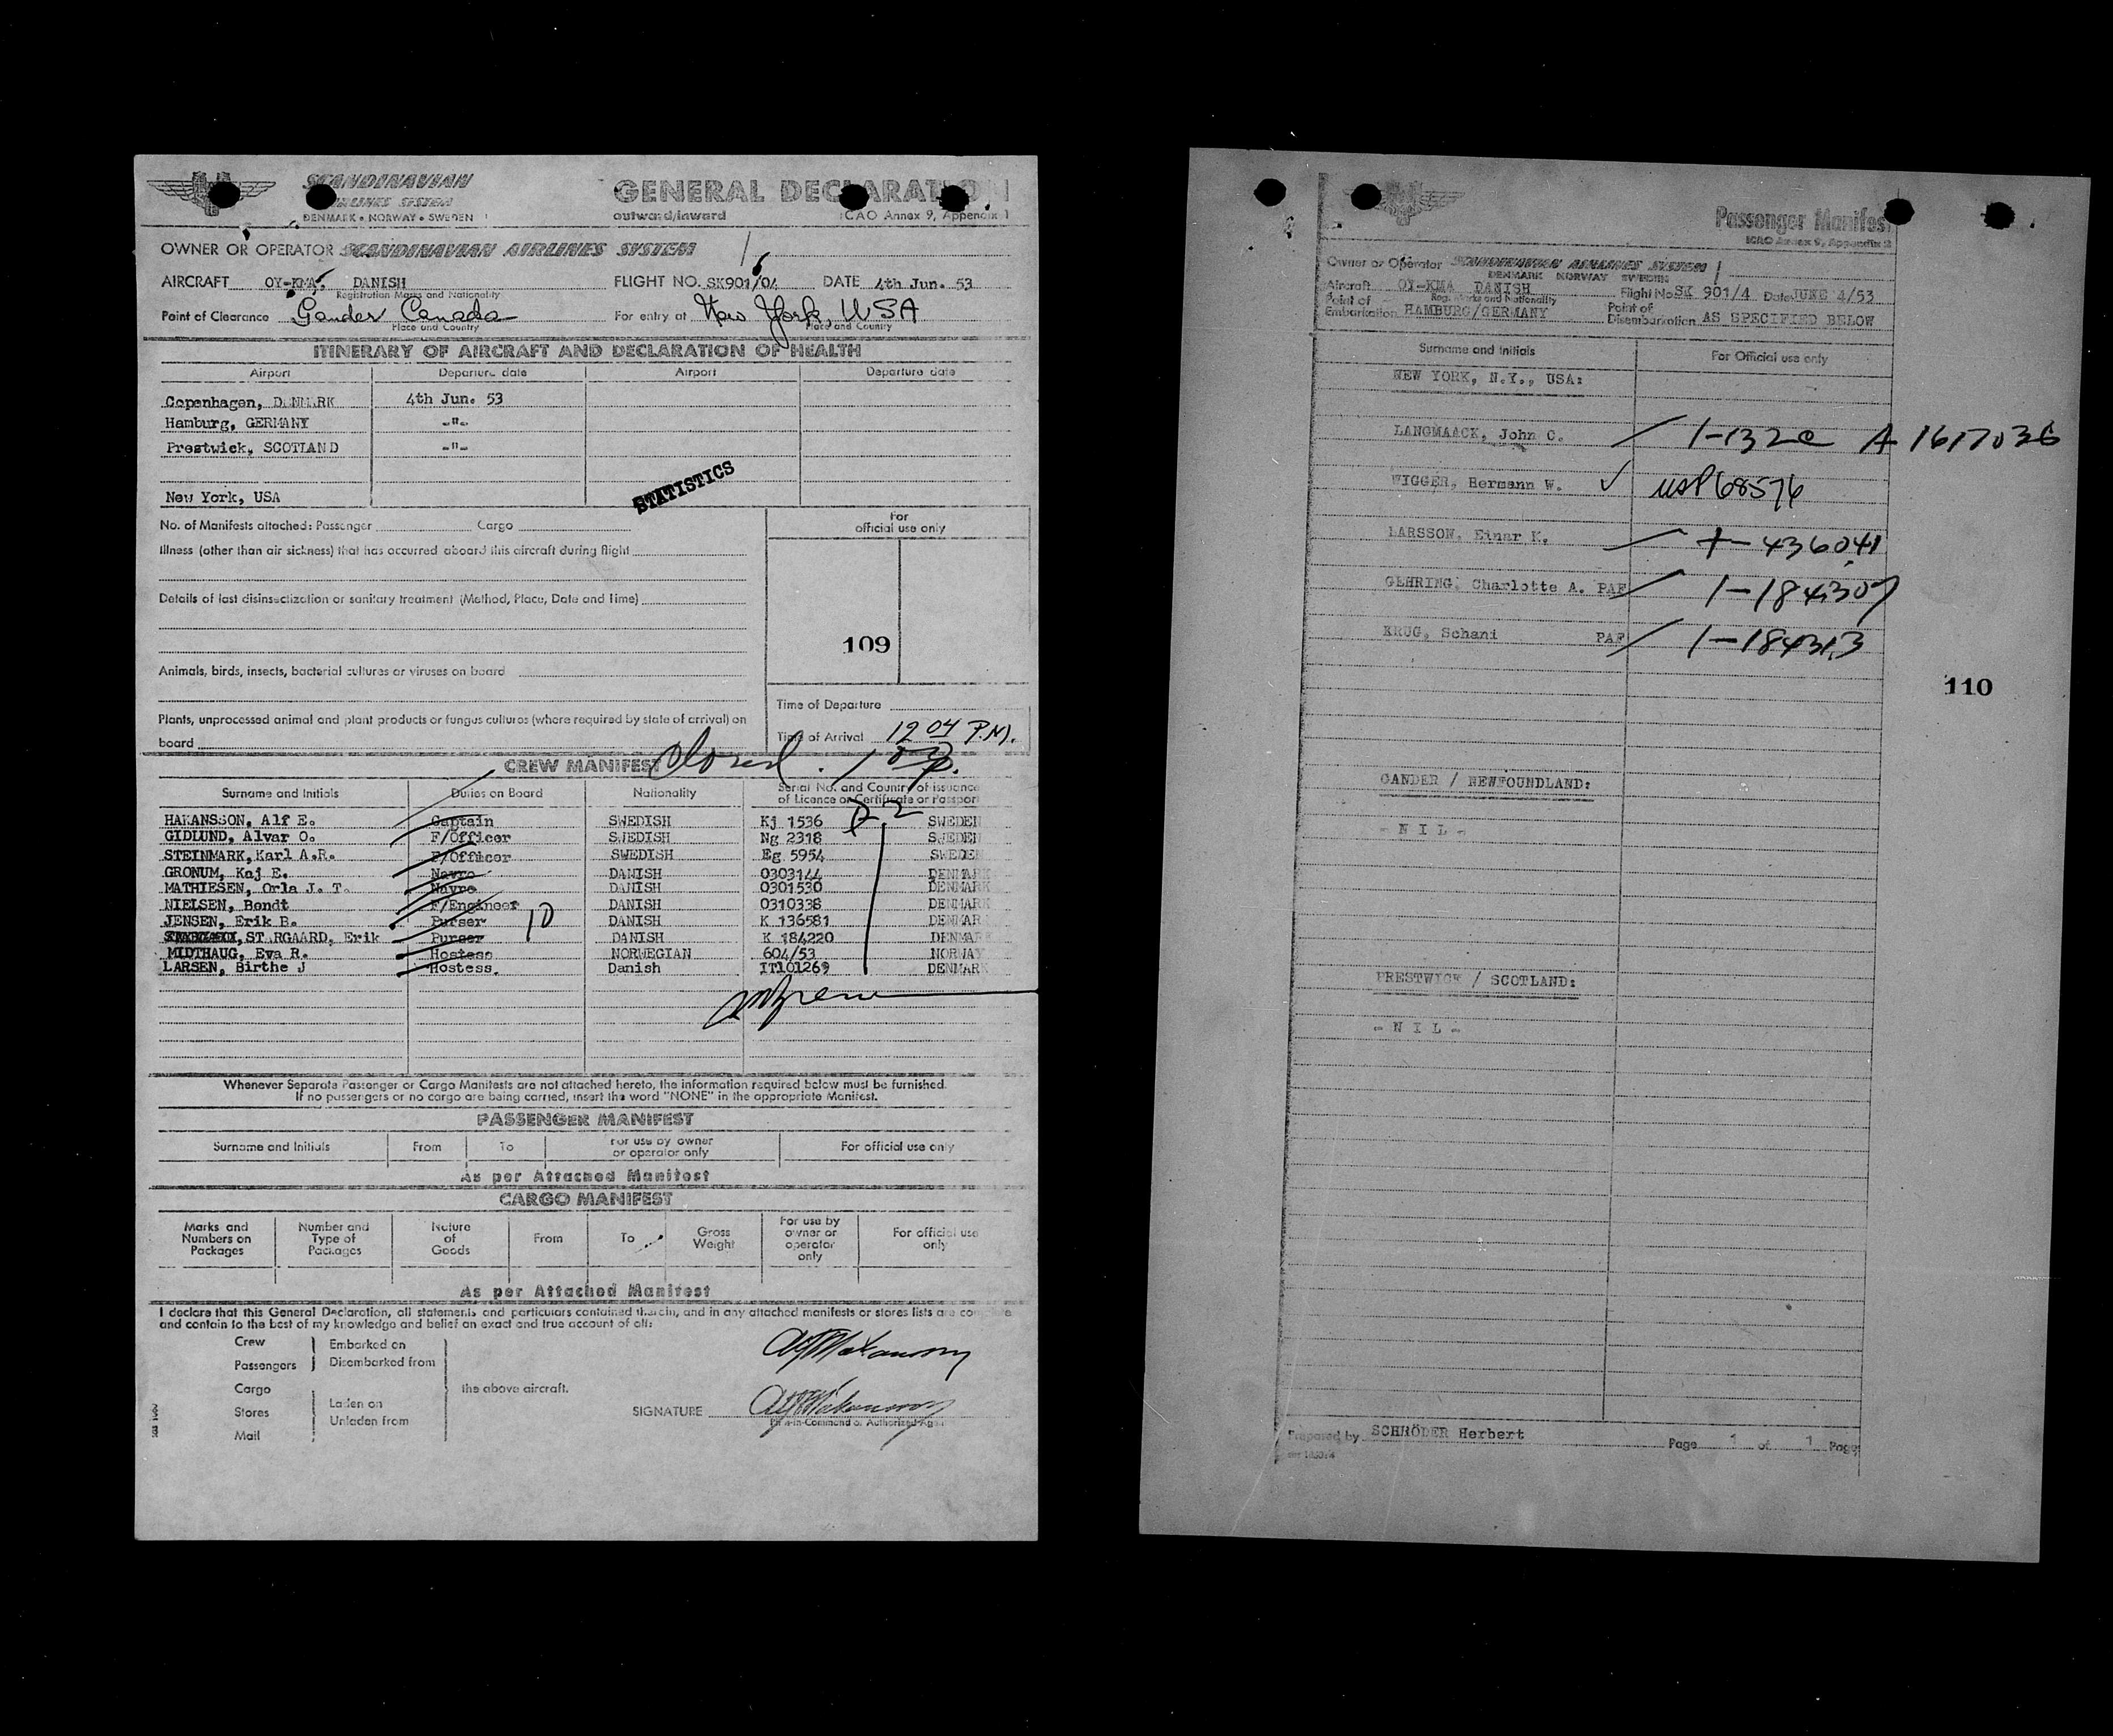 SCANDINAVIAN
AIRLINES SYSTEM
DENMARK • NORWAY • SWEDEN
GENERAL DECLARATION
outward/inward ICAO Annex 9, Appendix 1
OWNER OR OPERATOR SCANDINAVIAN AIRLINES SYSTEM
AIRCRAFT OY-KMA, DANISH FLIGHT NO. SK901/04 DATE 4th Jun. 53
Registration Marks and Nationality
Point of Clearance Gander Canada For entry at New York, USA
Place and Country Place and Country
ITINERARY OF AIRCRAFT AND DECLARATION OF HEALTH
Airport Departure date Airport Departure date
Copenhagen, DENMARK 4th Jun. 53
Hamburg, GERMANY -"-
Prestwick, SCOTLAND -"-
STATISTICS
New York, USA
No. of Manifests attached: Passenger Cargo
For
official use only
Illness (other than air sickness) that has occurred aboard this aircraft during flight
Details of last disinsectization or sanitary treatment (Method, Place, Date and Time)
109
Animals, birds, insects, bacterial cultures or viruses on board
Time of Departure
Plants, unprocessed animal and plant products or fungus cultures (where required by state of arrival) on
board
Time of Arrival 12 04 P.M.
CREW MANIFEST closed.
Surname and Initials Duties on Board Nationality Serial No. and Country of issuance
of Licence or Certificate or Passport
HAKANSSON, Alf E. Captain SWEDISH Kj 1536 SWEDEN
GIDLUND, Alvar O. F/Officer SWEDISH Ng 2318 SWEDEN
STEINMARK, Karl A.R. F/Officer SWEDISH Eg 5954 SWEDEN
GRONUM, Kaj E. Navro DANISH 0303144 DENMARK
MATHIESEN, Orla J. T. Navro DANISH 0301530 DENMARK
NIELSEN, Bendt F/Engineer DANISH 0310338 DENMARK
JENSEN, Erik B. Purser 10 DANISH K 136581 DENMARK
STARGAARD, Erik Purser DANISH K 184220 DENMARK
MIDTHAUG, Eva R. Hostess NORWEGIAN 604/53 NORWAY
LARSEN, Birthe J Hostess. Danish IT101269 DENMARK
Whenever Separate Passenger or Cargo Manifests are not attached hereto, the information required below must be furnished.
If no passengers or no cargo are being carried, insert the word "NONE" in the appropriate Manifest.
PASSENGER MANIFEST
Surname and Initials From To For use by owner
or operator only For official use only
As per Attached Manifest
CARGO MANIFEST
Marks and
Numbers on
Packages
Number and
Type of
Packages
Nature
of
Goods
From
To
Gross
Weight
For use by
owner or
operator
only
For official use
only
As per Attached Manifest
I declare that this General Declaration, all statements and particulars contained therein, and in any attached manifests or stores lists are complete
and contain to the best of my knowledge and belief an exact and true account of all:
Crew Embarked on
Passengers Disembarked from
Cargo the above aircraft.
Stores Laden on
Unladen from
Mail
SIGNATURE
Pilot-in-Command or Authorized Agent
Passenger Manifest
ICAO Annex 9, Appendix 2
Owner or Operator SCANDINAVIAN AIRLINES SYSTEM
DENMARK NORWAY SWEDEN
Aircraft OY-KMA DANISH Flight No SK 901/4 Date JUNE 4/53
Reg. Marks and Nationality
Point of
Embarkation HAMBURG/GERMANY
Point of
Disembarkation AS SPECIFIED BELOW
Surname and Initials For Official use only
NEW YORK, N.Y., USA:
LANGMAACK, John C. 1-132c A 1617036
WIGGER, Hermann W. USP 68576
LARSSON, Einar K. 436041
GEHRING, Charlotte A. PAF 1-184307
KRUG, Schani PAF 1-184313
110
GANDER / NEWFOUNDLAND:
- N I L -
PRESTWICK / SCOTLAND:
- N I L -
Prepared by SCHRÖDER Herbert Page 1 of 1 Page